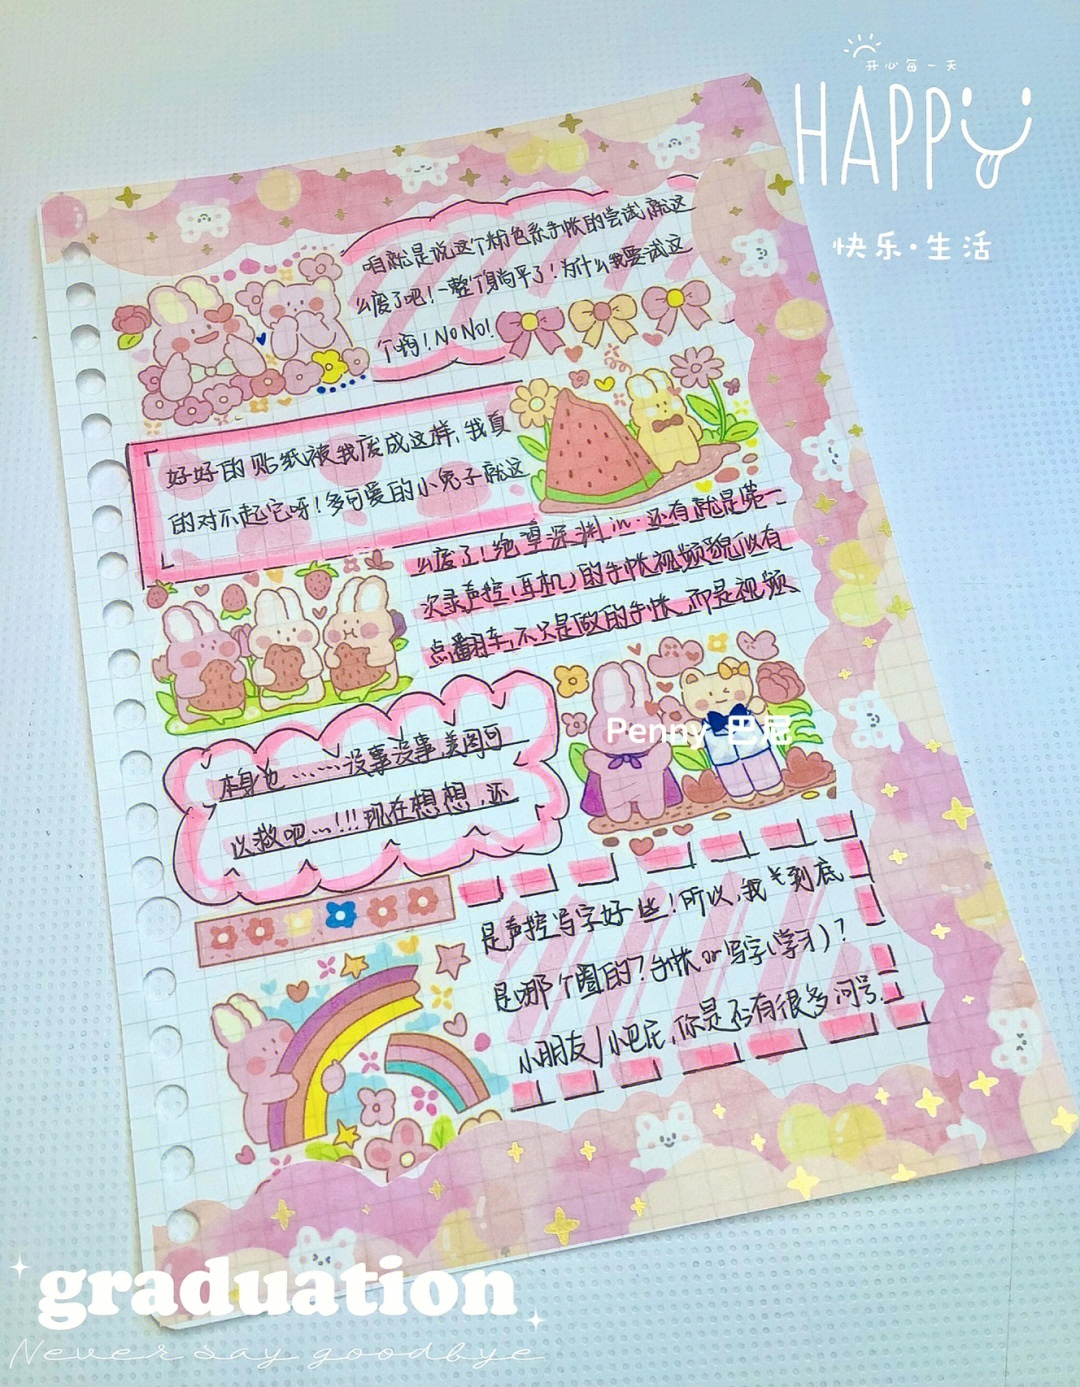 开心每一天
HAPPY
快乐·生活
咱就是说这个粉色系手帐的尝试,就这
么废了吧!一整个身躺平了!为什么我要试这
个啊!NoNo!
好好的贴纸被我废成这样,我真
的对不起它呀!多可爱的小兔子就这
么废了!绝望深渊in.还有就是第一
次录声控(耳机)的手帐视频貌似有
点翻车,不只是做的手帐,而是视频
本身也……没事没事,美图可
以救吧…!!!现在想想,还
是声控写字好些!所以,我关到底
是哪个圈的?手帐or写字(学习)?
小朋友/小巴尼,你是否有很多问号.
Penny 巴尼
graduation
Never say goodbye